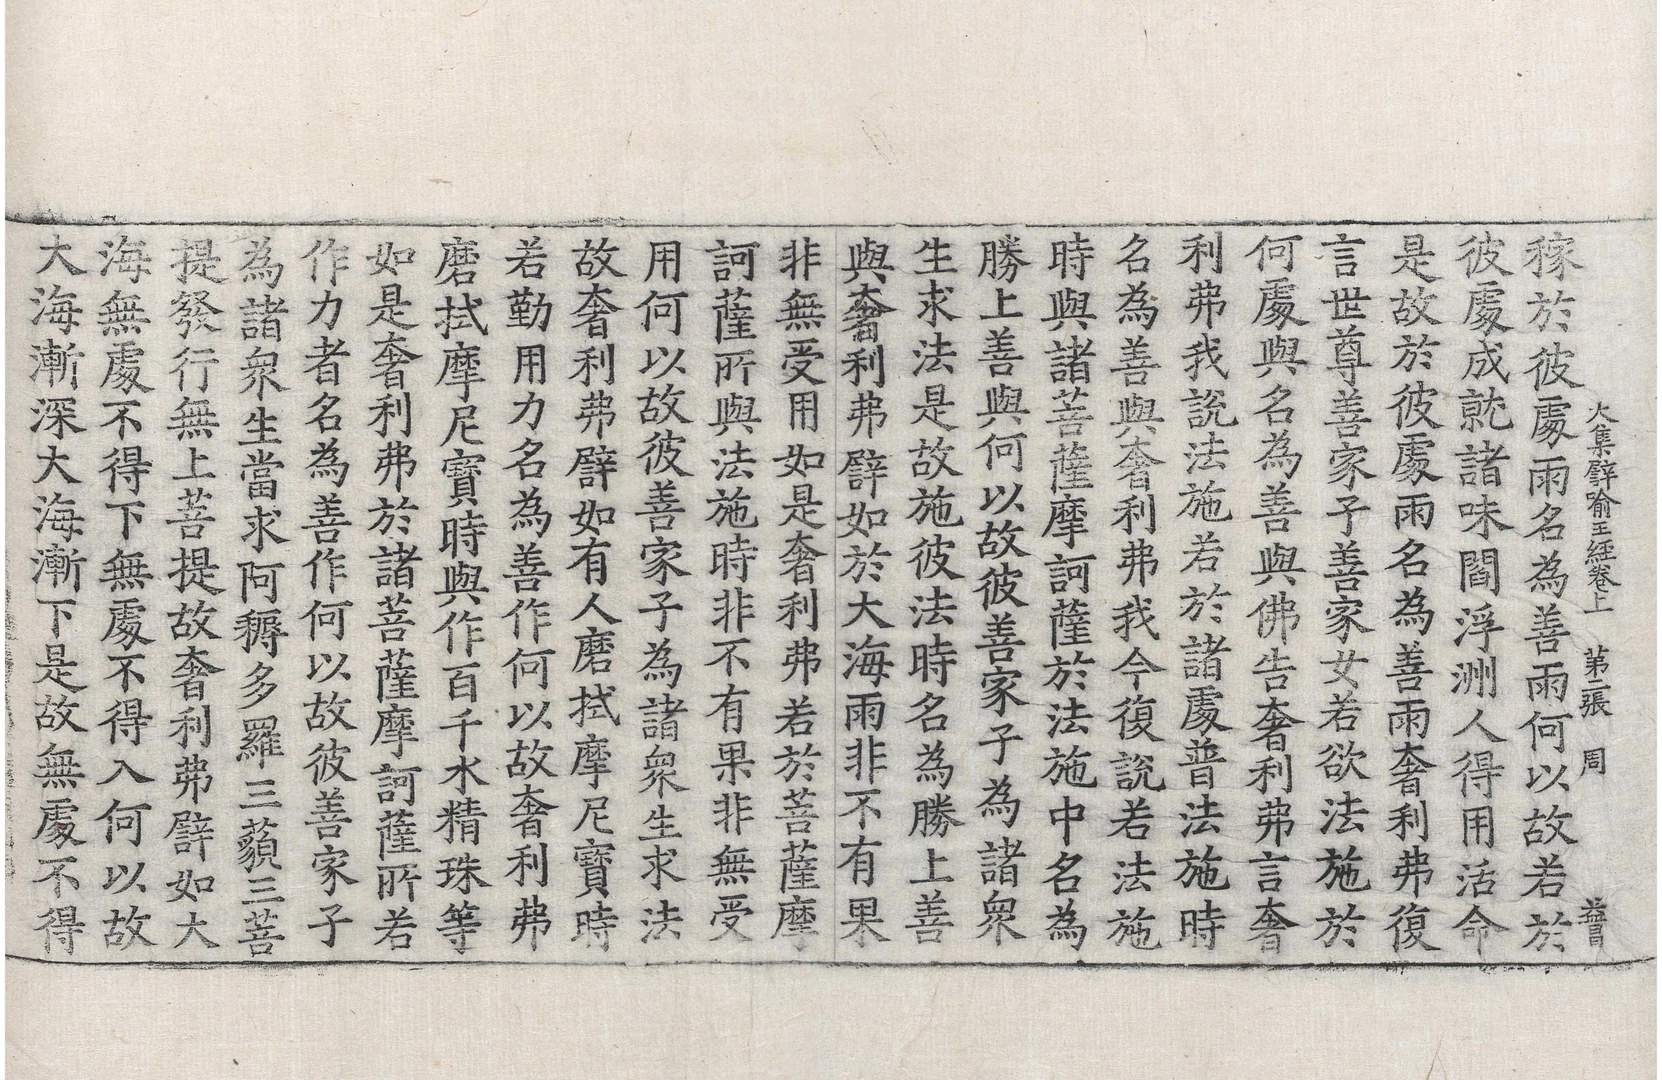 大集譬喻王經卷上 第二張 周
稼於彼處雨名為善雨何以故若於
彼處成就諸味閻浮洲人得用活命
是故於彼處雨名為善雨奢利弗復
言世尊善家子善家女若欲法施於
何處與名為善與佛告奢利弗言奢
利弗我說法施若於諸處普法施時
名為善與奢利弗我今復說若法施
時與諸菩薩摩訶薩於法施中名為
勝上善與何以故彼善家子為諸眾
生求法是故施彼法時名為勝上善
與奢利弗譬如於大海雨非不有果
非無受用如是奢利弗若於菩薩摩
訶薩所與法施時非不有果非無受
用何以故彼善家子為諸眾生求法
故奢利弗譬如有人磨拭摩尼寶時
若勤用力名為善作何以故奢利弗
磨拭摩尼寶時與作百千水精珠等
如是奢利弗於諸菩薩摩訶薩所若
作力者名為善作何以故彼善家子
為諸眾生當求阿耨多羅三藐三菩
提發行無上菩提故奢利弗譬如大
海無處不得下無處不得入何以故
大海漸深大海漸下是故無處不得